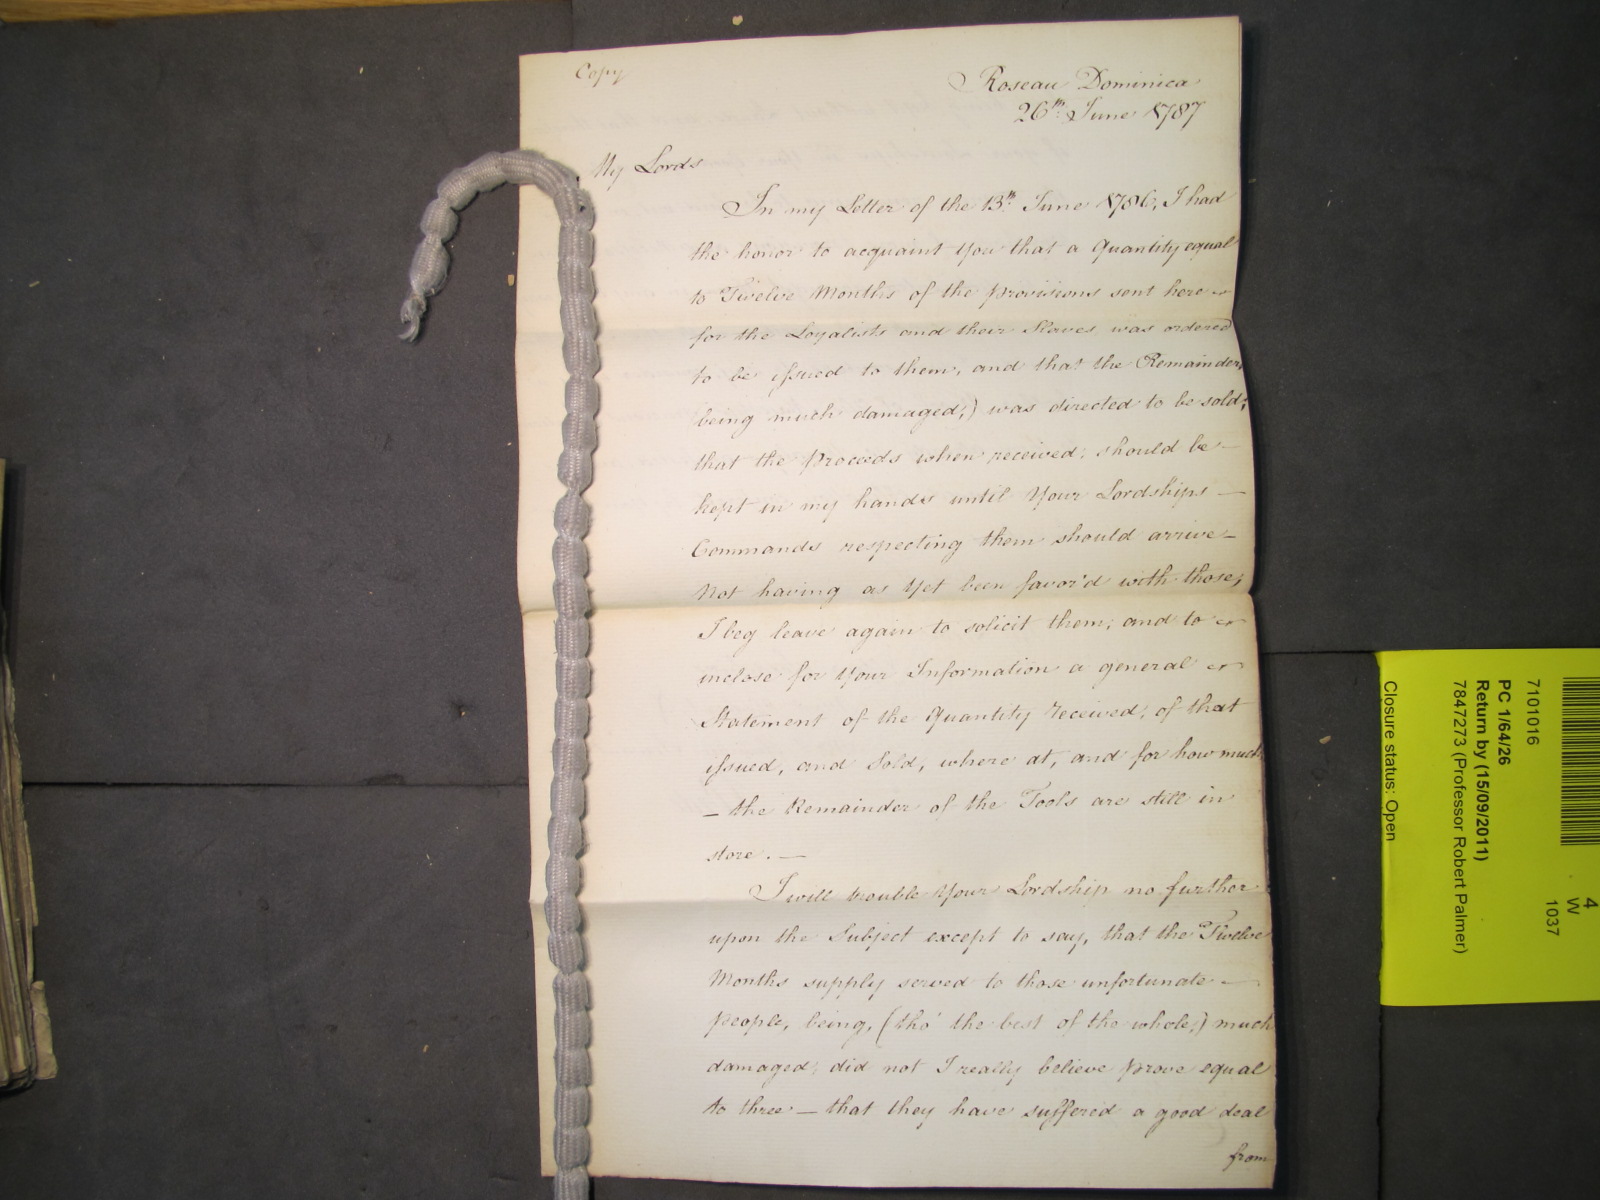 Copy
Roseau Dominica
26th June 1787
My Lords
In my Letter of the 13th June 1786, I had
the honor to acquaint You that a Quantity equal
to Twelve Months of the provisions sent here
for the Loyalists and their Slaves was ordered
to be issued to them, and that the Remainder,
(being much damaged;) was directed to be sold;
that the proceeds when received, should be —
kept in my hands until Your Lordships —
Commands respecting them should arrive —
Not having as Yet been favor'd with those,
I beg leave again to solicit them; and to
inclose for Your Information a general
Statement of the Quantity received, of that
issued, and Sold, where at, and for how much
— the Remainder of the Tools are still in
store. —
I will trouble Your Lordship no further
upon the Subject except to say, that the Twelve
Months supply served to those unfortunate —
people, being, (tho' the best of the whole;) much
damaged, did not I really believe prove equal
to three — that they have suffered a good deal
from
7101016
PC 1/64/26
Return by (15/09/2011)
7847273 (Professor Robert Palmer)
Closure status: Open
4
W
1037